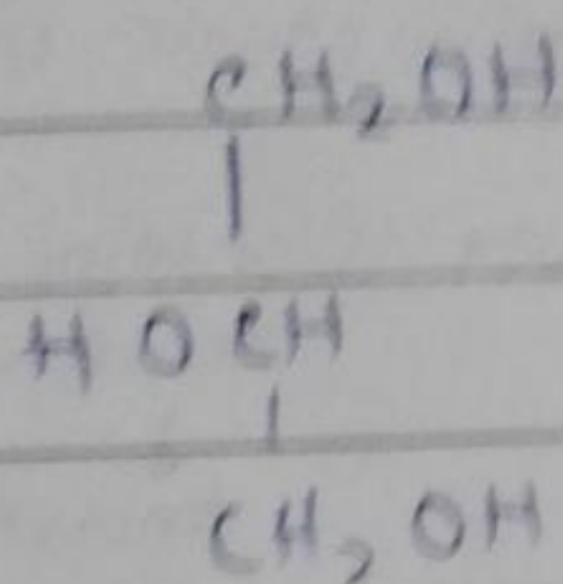 CH₂OH
|
HOCH
|
CH₂OH